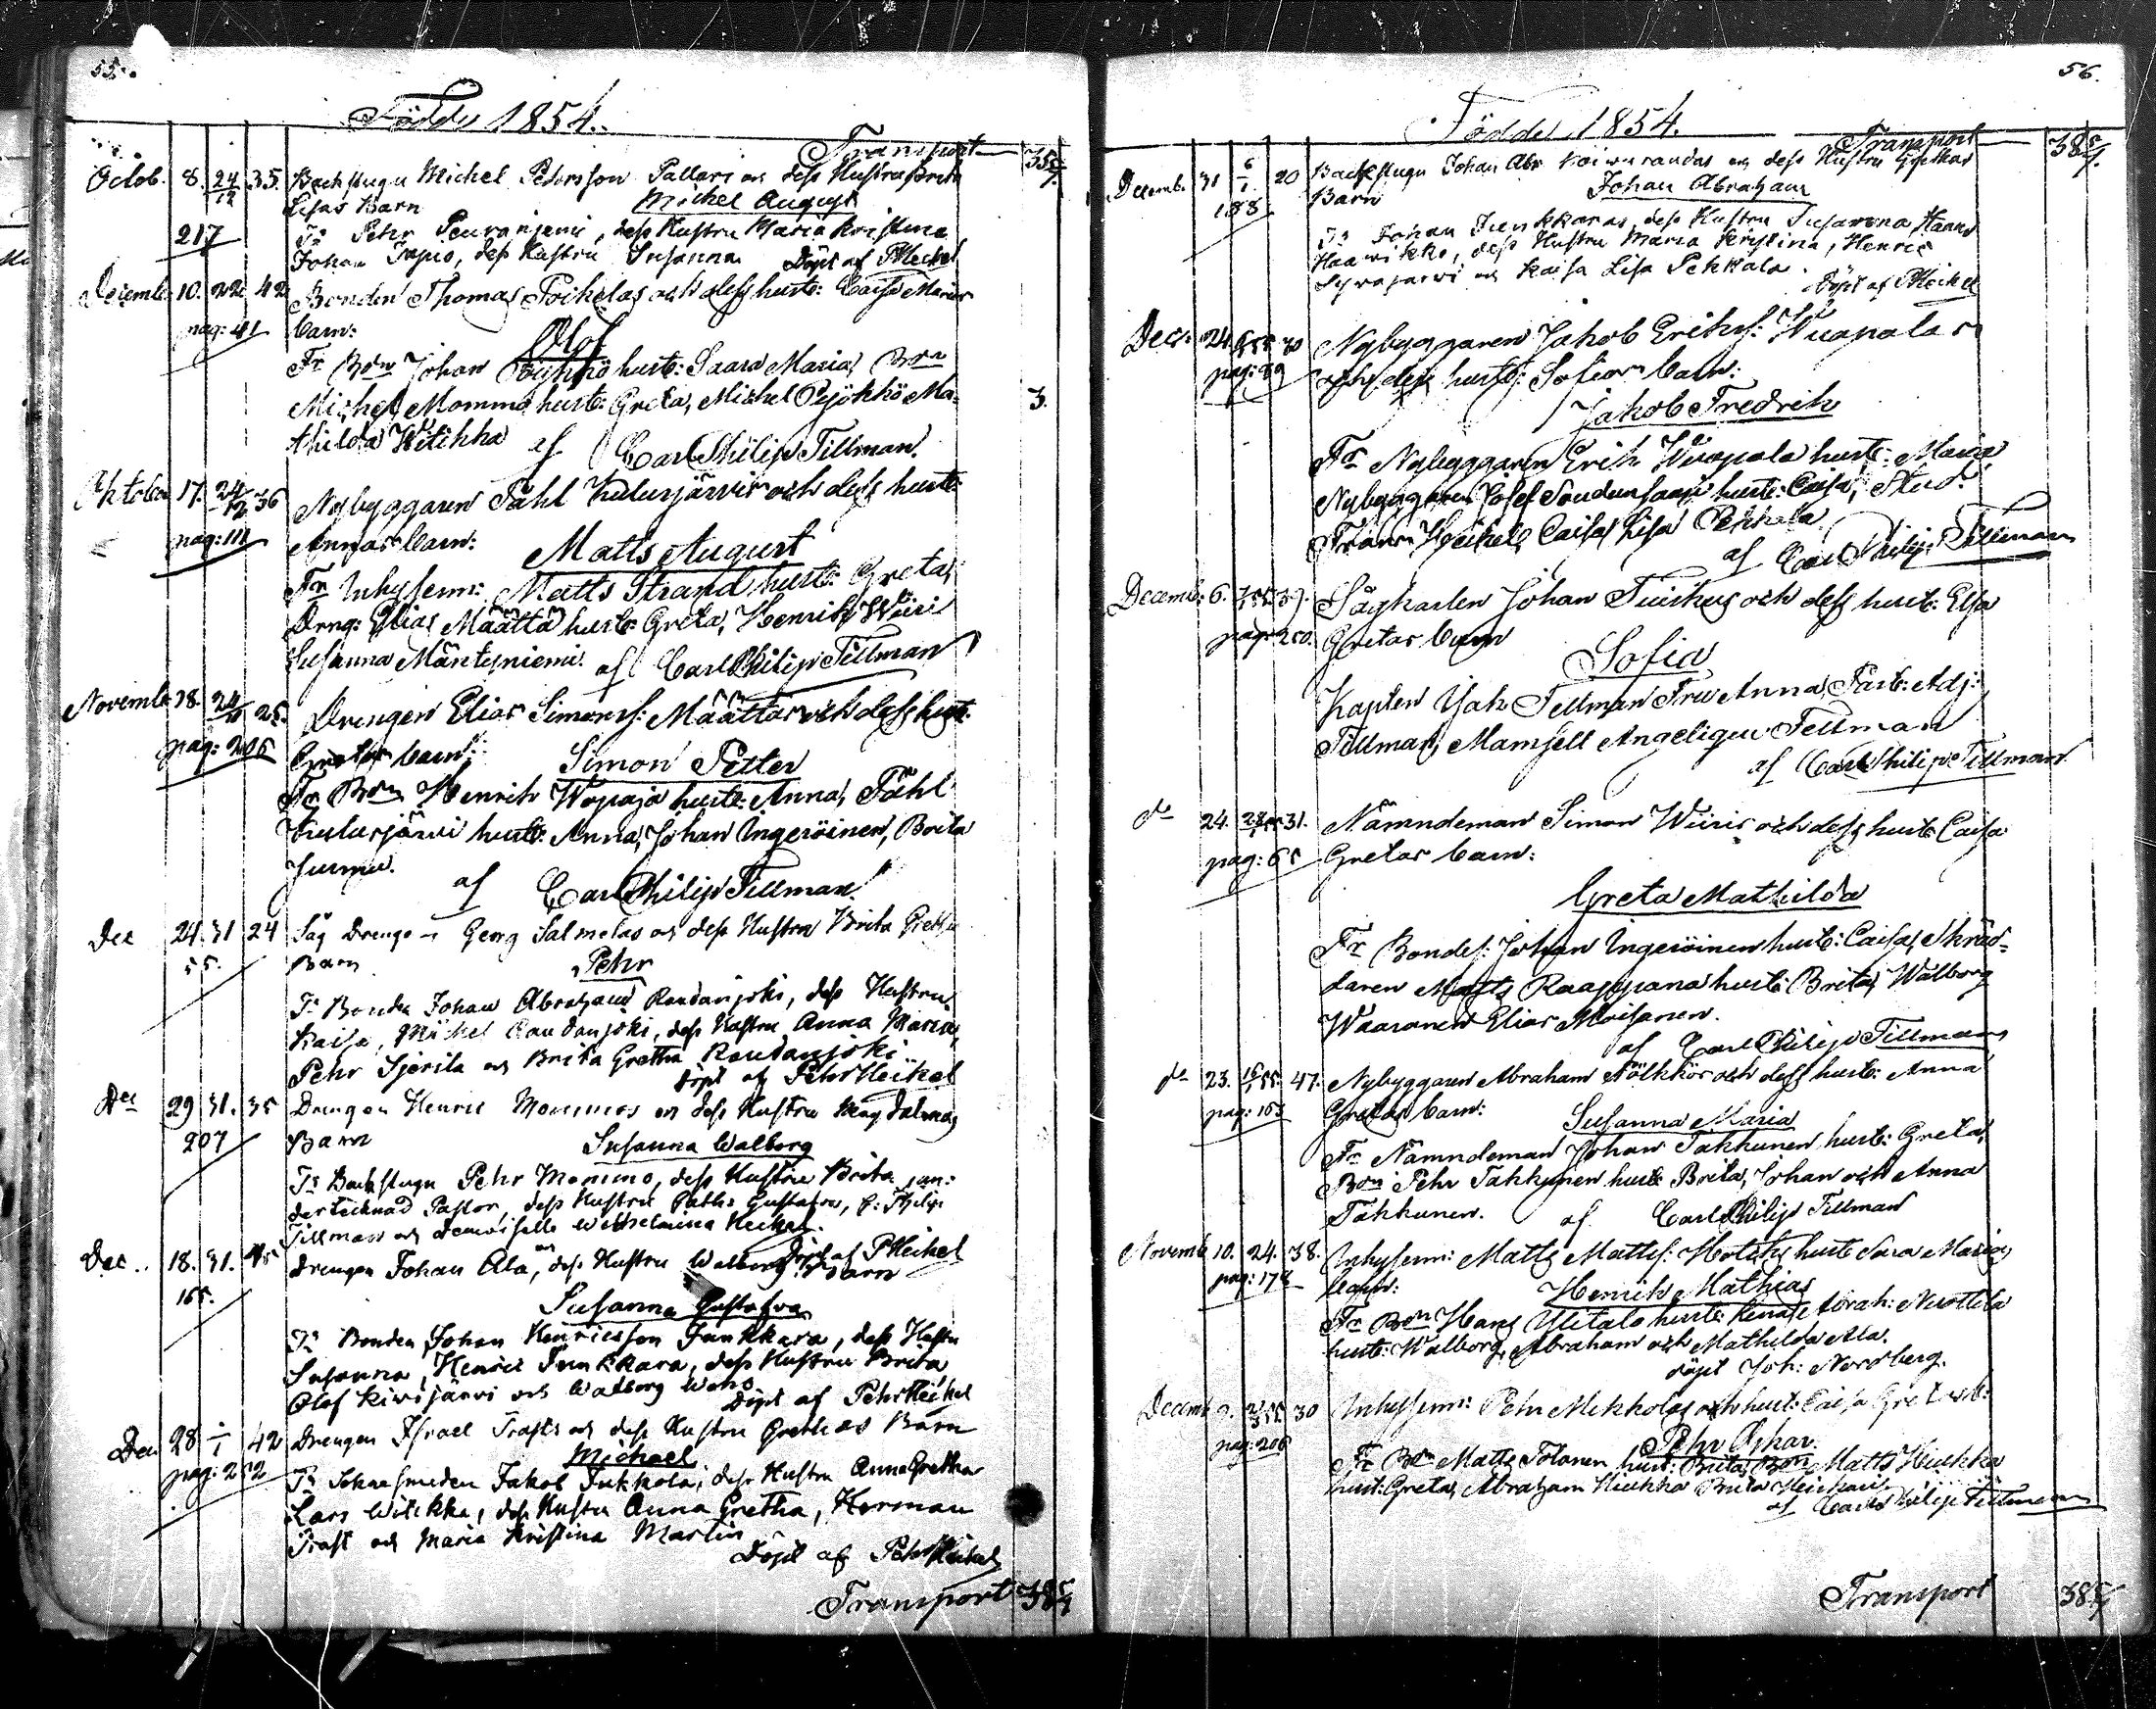 55.
Födde 1854.
Transport 35 5/7.
Octob. 8. 24/12 35. Backstugu Michel Petersson Pallari och dess Hustru Brita
Lisas Barn Michel August
217 Fr Pehr Peuraniemi, dess Hustru Maria Kristina
Johan Tapio, dess Hustru Susanna Döpt af PHeikel
Decembe 10. 22. 42 Bonden Thomas Poikelas och dess hust: Caisa Marias
pag: 41 barn: Olof
Fr Bdn Johan hust: Saara Maria, Bdn
Michel Mommo hust: Greta, Michel Pejökkö Ma- 3.
thilda Witikka af Carl Philip Tillman.
Oktober 17. 24/12 36 Nybyggaren Påhl Kulusjärvis och dess hust:
pag: 111 Annas barn: Matts August
Fr Inhysem: Matts Strand hust: Greta,
Dreng: Elias Määttä hust: Greta, Henrik Wiiri
Susanna Mäntyniemi. af Carl Philip Tillman
Novembe 18. 24 25. Drengen Elias Simonss: Määttas och dess hust:
pag: 206 Gretas barn: Simon Petter
Fr Bdn Henrik Wopaja hust: Anna, Påhl
Kulusjärvi hust: Anna, Johan Ingeröinen, Brita
Jurmu. af Carl Philip Tillman
Dec 24. 31 24 Såg Drenge Georg Salmelas och dess Hustru Brita Grethas
55. Barn Pehr
Fr Bonde Johan Abraham Raudanjoki, dess Hustru
Kaisa, Michel Raudanjoki, dess Hustru Anna Maria,
Pehr Sjerila och Brita Gretha Raudanjoki
Döpt af Pehr Heikel
Dec 29 31. 35 Drengen Henric Mommos och dess Hustru Magdalenas
207 Barn Susanna Walborg
Fr Backstugu Pehr Mommo, dess Hustru Brita, un-
dertecknad Pastor, dess Hustru Gustafva, C: Philip
Tillman och Demoiselle Wilhelmina Heikel.
Döpt af PHeikel
Dec. 18. 31. 45 Drengen Johan Ala, och dess Hustru Walborgs Barn
165. Susanna Gustafva
Fr Bonden Johan Henricsson Junkkara, dess Hustru
Susanna, Henric Junkkara, dess Hustru Brita
Olof Kiwijärvi och Walborg
Döpt af Pehr Heikel
Dec 28 1/1 42 Drengen Israel Trasts och dess Hustru Grethas Barn
pag: 252 Michael
Fr Jakob Jukkola, dess Hustru Anna Gretha
Lars Witikka, dess Hustru Anna Gretha, Herman
Trast och Maria Kristina Martin
Döpt af Pehr Heikel
Transport 38 5/7
56.
Födde 1854.
Transport 38 5/7.
Decemb. 31 6/1. 20 Backstugu Johan Abr Koiwurandas och dess Hustru Grethas
188 Barn Johan Abraham
Fr Johan Junkkaras, dess Hustru Susanna Hannes
Haawikko, dess Hustru Maria Kristina, Henric
Syväjärvi och Kaisa Lisa Pekkala.
Döpt af PHeikel
Dec: 24. 30 Nybyggaren Jakob Eriks: Wuopalas
pag: 89 och dess hust: Sofias barn:
Jakob Fredrik
Fr Nybyggaren Erik Wuopala hust: Maria
Nybyggaren Josef Soudunsaari hust: Caisa, Stud:
Frans Heikel, Caisa Lisa Pekkala
af Carl Philip Tillman
Decemb: 6. 37. Sågkarlen Johan Tuiskus och dess hust: Elsa
pag: 250. Gretas barn
Sofia
Kapten Jak Fellman Fru Anna, Past: Adj:
Tillman, Mamsell Angelique Fellman
af Carl Philip Tillman
do 24. 31. Nämndeman Simon Wiiris och dess hust: Caisa
pag: 65 Gretas barn:
Greta Mathilda
Fr Bondes: Johan Ingeröinen hust: Caisa, Skräd-
daren Matts Raappana hust: Brita, Walborg
Waaranen Elias Moisanen.
af Carl Philip Tillman
do 23. 16/1 55. 47. Nybyggaren Abraham Pölkkös och dess hust: Anna
pag: 163 Gretas barn: Susanna Maria
Fr Nämndeman Johan Takkunen hust: Greta,
Bdn Pehr Takkunen hust: Brita, Johan och Anna
Takkunen. af Carl Philip Tillman
Novemb 10. 24. 38. Inhysem: Matts Matts: hust Sara Marias
pag: 178 barn: Henrik Mathias
Fr Bdn Hans Ylitalo hust: Lena, Abrah: Niemelä
hust: Walborg, Abraham och Mathilda Ala.
döpt Joh: Nordberg.
Decemb 9. 30 Inhysem: Pehr Mekkolas och hust: Caisa Gretas b:
pag: 206 Pehr Oskar
Fr Bdn Matts Tolanen hust: Brita, Bdn Matts Hiukka
hust: Greta, Abraham Hiukka Brita
af Carl Philip Tillman
Transport 38 5/7